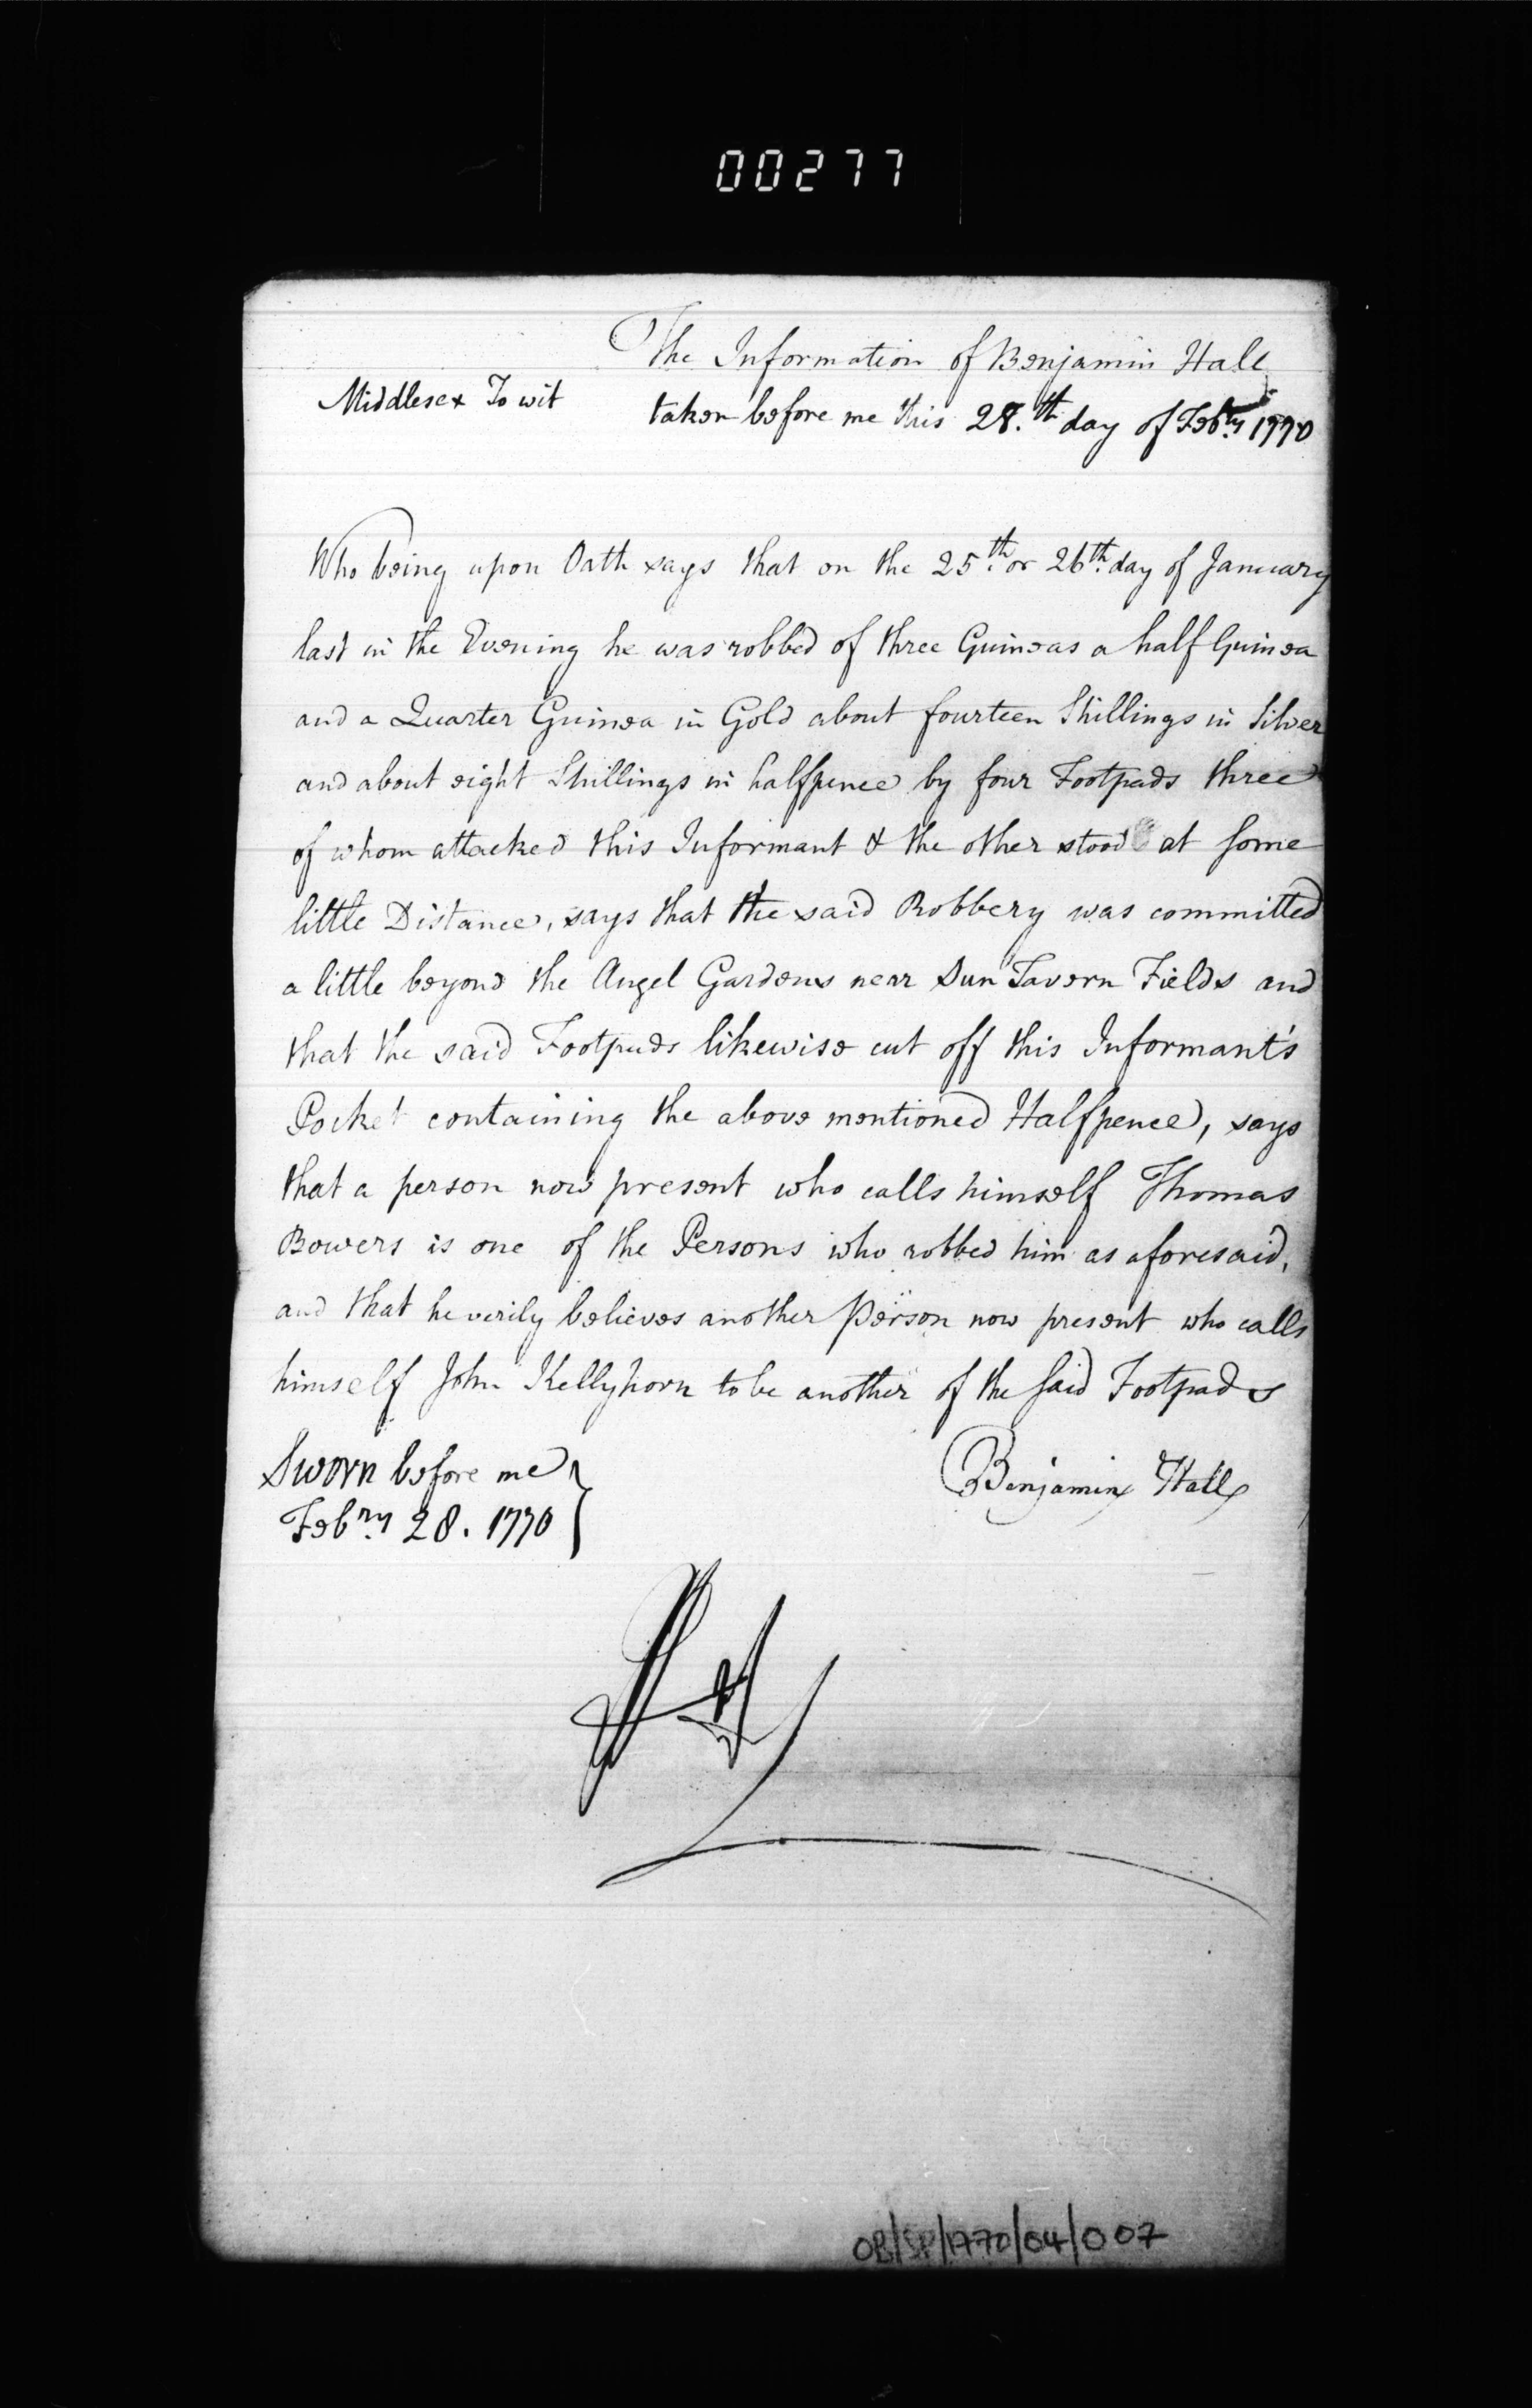 00277
The Information of Benjamin Hall
Middlesex To wit
taken before me this 28.th day of Febry 1770
Who being upon Oath says that on the 25.th or 26th. day of January
last in the Evening he was robbed of three Guineas a half Guinea
and a Quarter Guinea in Gold about fourteen Shillings in Silver
and about eight Shillings in halfpence by four Footpads three
of whom attacked this Informant & the other stood at some
little Distance, says that the said Robbery was committed
a little beyond the Angel Gardens near Sun Tavern Fields and
that the said Footpads likewise cut off this Informant's
Pocket containing the above mentioned Halfpence, says
that a person now present who calls himself Thomas
Bowers is one of the Persons who robbed him as aforesaid,
and that he verily believes another person now present who calls
himself John Kellyhorn to be another of the said Footpads
Sworn before me
Febry 28. 1770
Benjamin Hall
OB/SP/1770/04/007